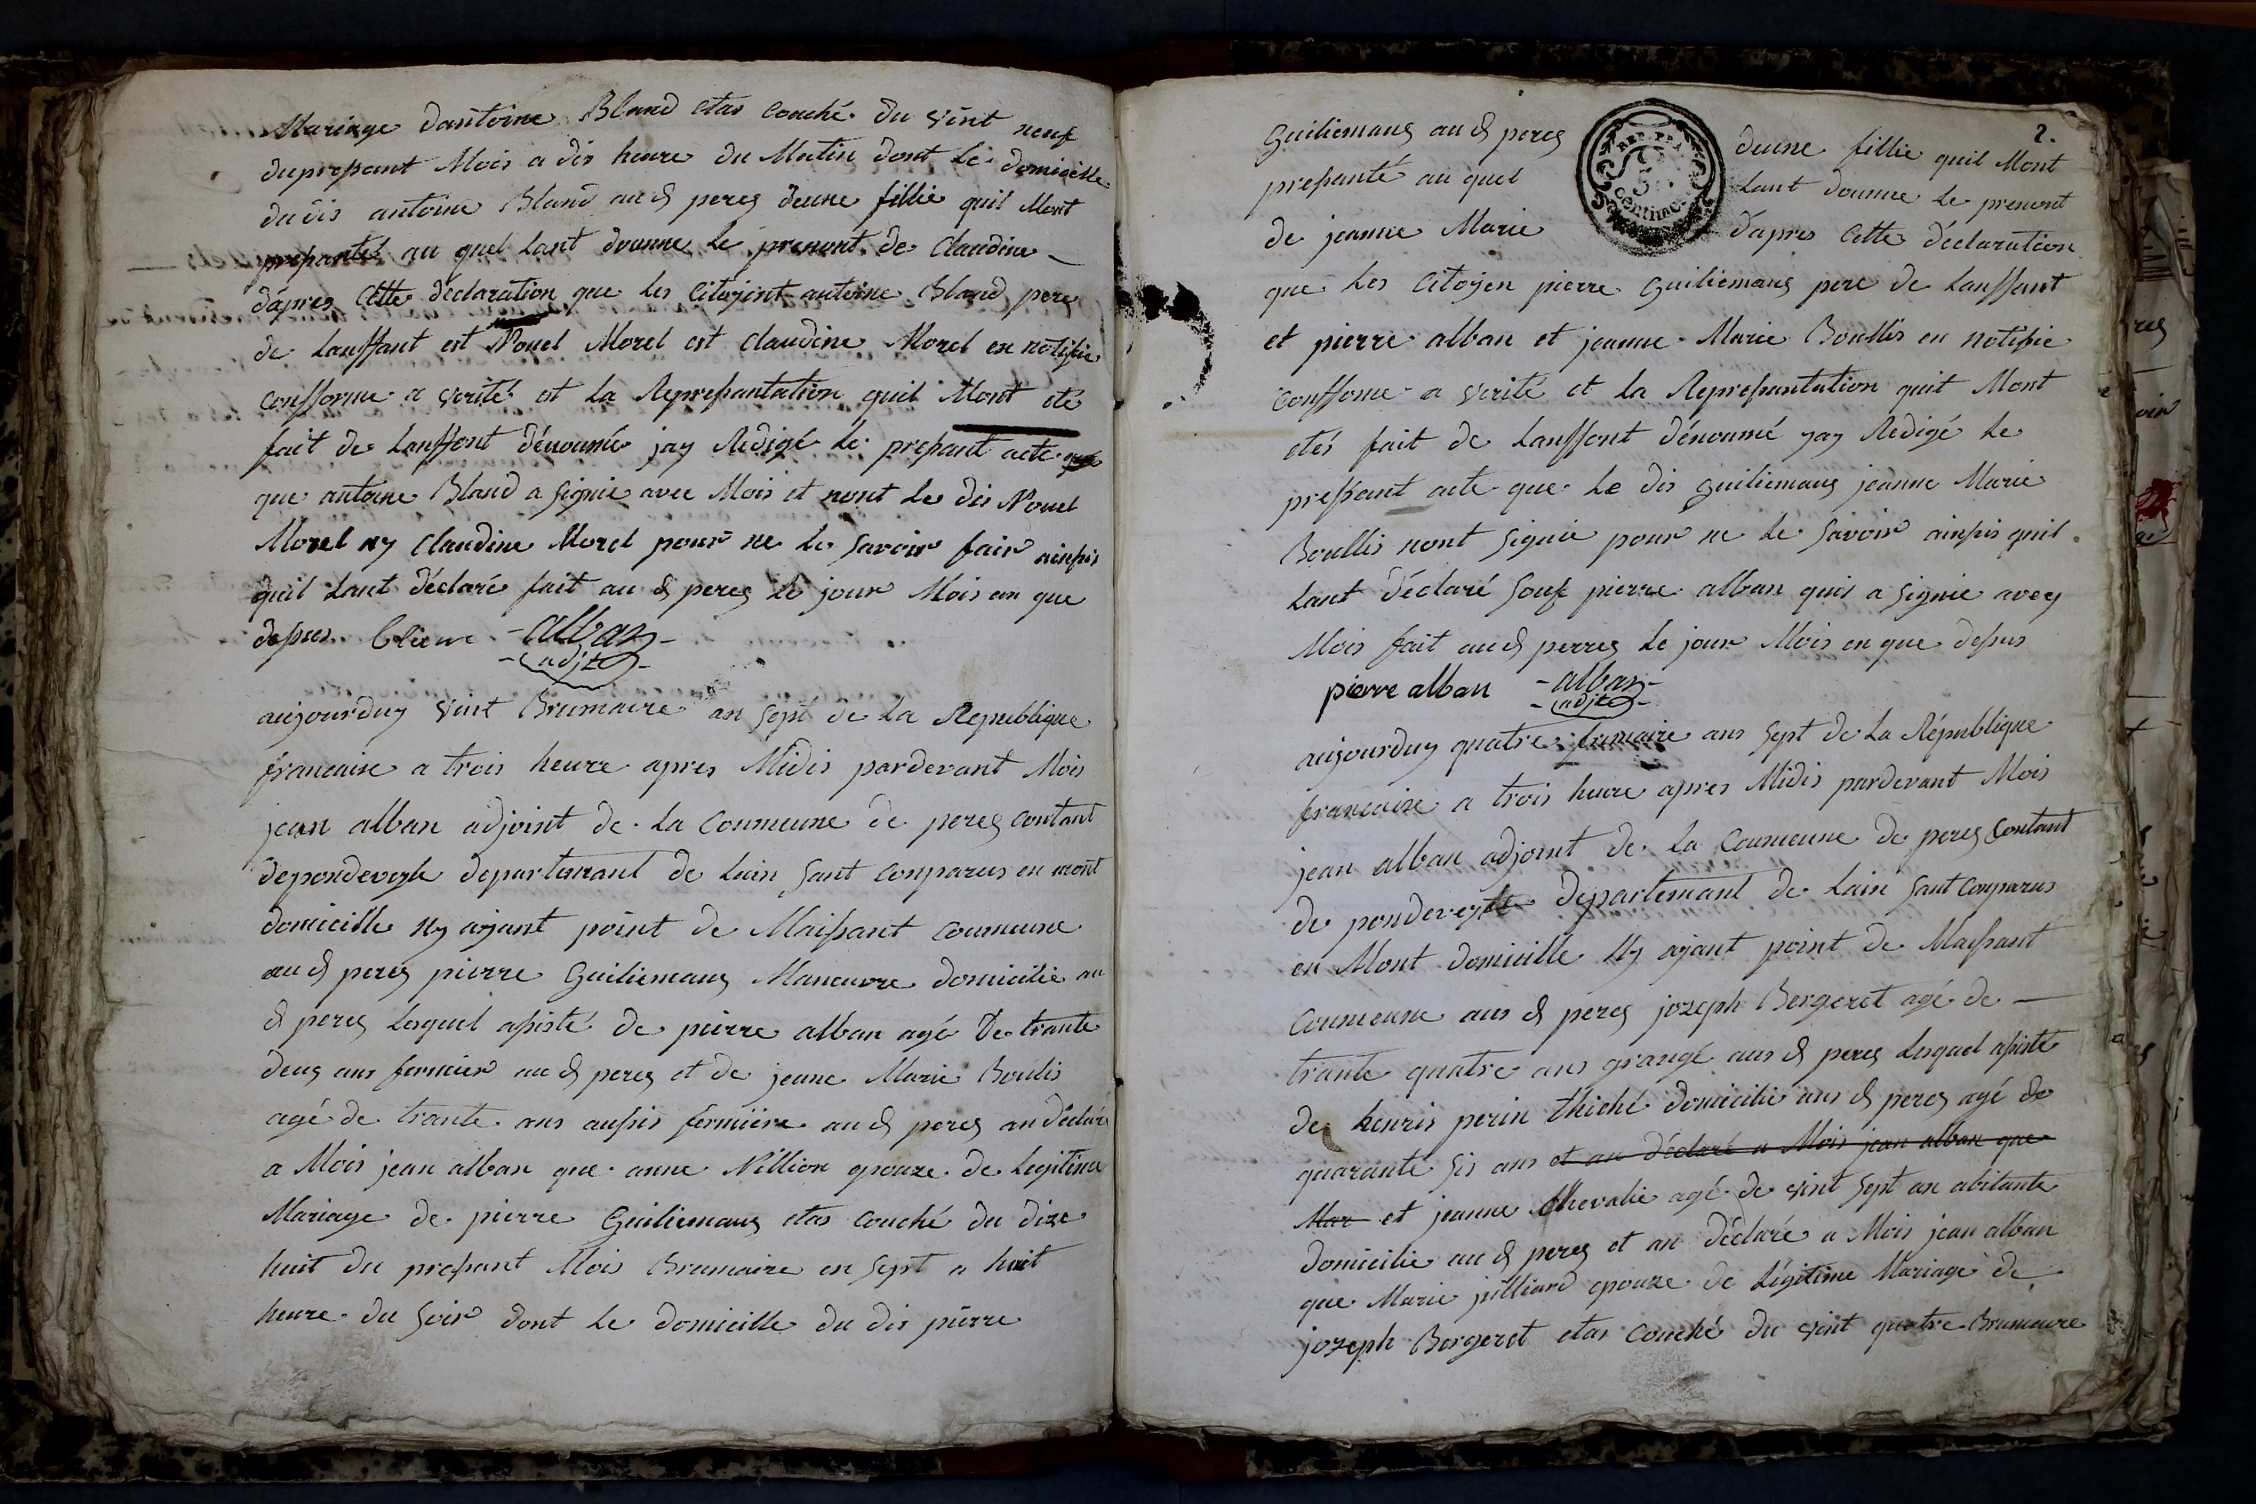 Mariage dantoine Bland etas couché du vint neuf
du prepant Mois a dis heure du Matin dont le domicille
du dis antoine Bland au d peres deune fillie quil Mont
prepanté au quel Lant donnne le prenont de Claudine
dápres Cette déclaration que les Citoyent antoine Bland pere
de Lanffant est Nouel Morel est Claudine Morel en notifie
confforme a verité et La Reprepantation quil Mont eté
fait de Lanffont dénoumé jay Redigé Le prepant acte
que antoine Bland a signie avec Mois et nont Le dis Nouel
Morel ny Claudine Morel pour ne le savoir fair ainpis
quil Lant déclaré fait au d peres Le jour Mois an que
depus alban
adjt
aujourduy vint Brumaire an sept de La Republique
francaise a trois heure apres Midis pardevant Mois
jean alban adjoint de La Coumeune de peres Contant
depondevegle departemant de Lain sant Comparus en mont
domicille ny ajant point de Maipant coumeune
au d peres pierre Guiliemaus Maneuvre domicilie au
d peres Lequel apisté de pierre alban agé de trante
deus ans fermier au d peres et de jeane Marie Boulis
agé de trante ans aupis fermière au d peres an déclaré
a Mois jean alban que anne Nillion epouze de Legitime
Mariage de pierre Guiliemaus etas couché du dize
huit du prepant Mois Brumaire en sept a huit
heure du soir dont le domicille du dis pierre
2.
Guiliemaus au d peres deune fillie quil Mont
prepanté au quel Lant donnne Le prenont
de jeanne Marie dápres Cette déclaration
REP. FRA
centime
que Les Citoyen pierre Guiliemaus pere de Lanffant
et pierre alban et jeanne Marie Boullis en notifie
confforme a verité et La Reprepantation quit Mont
etés fait de Lanffont dénoumé jay Redigé Le
prepant acte que Le dis guiliemaus jeanne Marie
Boullis nont signie pour ne le savoir ainpis quil
Lant déclaré souf pierre alban quis a signie avey
Mois fait au d perres Le jour Mois en que depus
pierre alban alban
adjt
aujourduy quatre frimaire ans sept de La République
francaise a trois heure apres Midis pardevant Mois
jean alban adjoint de La Coumeune de peres Contant
de pondevegle departemant de Lain sant Comparus
en Mont domicille Ny ajant point de Maipant
Coumeune aus d peres jozeph Bergeret agé de
trante quatre ans grangé aus d peres Lequel apisté
de henris perin thiché domicilie aus d peres agé de
quarante sis ans et an déclaré a Mois jean alban que
Mar et jeanne Chevalie agé de vint sept an abitante
domicilie au d peres et an déclaré a Mois jean alban
que Marie jilliard epouze de Légitime Mariage de
jozeph Bergeret etas Couché du vint quatre Brumaire